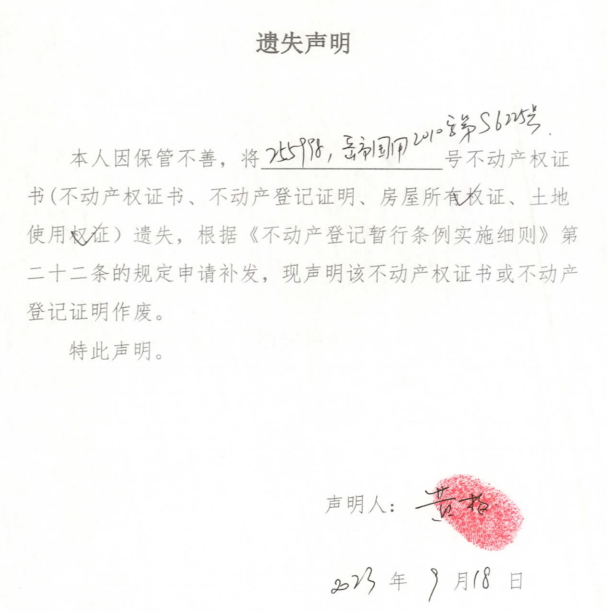 遗失声明
本人因保管不善，将255998，岳市国用2010字第S6225号号不动产权证
书(不动产权证书、不动产登记证明、房屋所有权证、土地
使用权证）遗失，根据《不动产登记暂行条例实施细则》第
二十二条的规定申请补发，现声明该不动产权证书或不动产
登记证明作废。
特此声明。
声明人：黄格
2023年9月18日